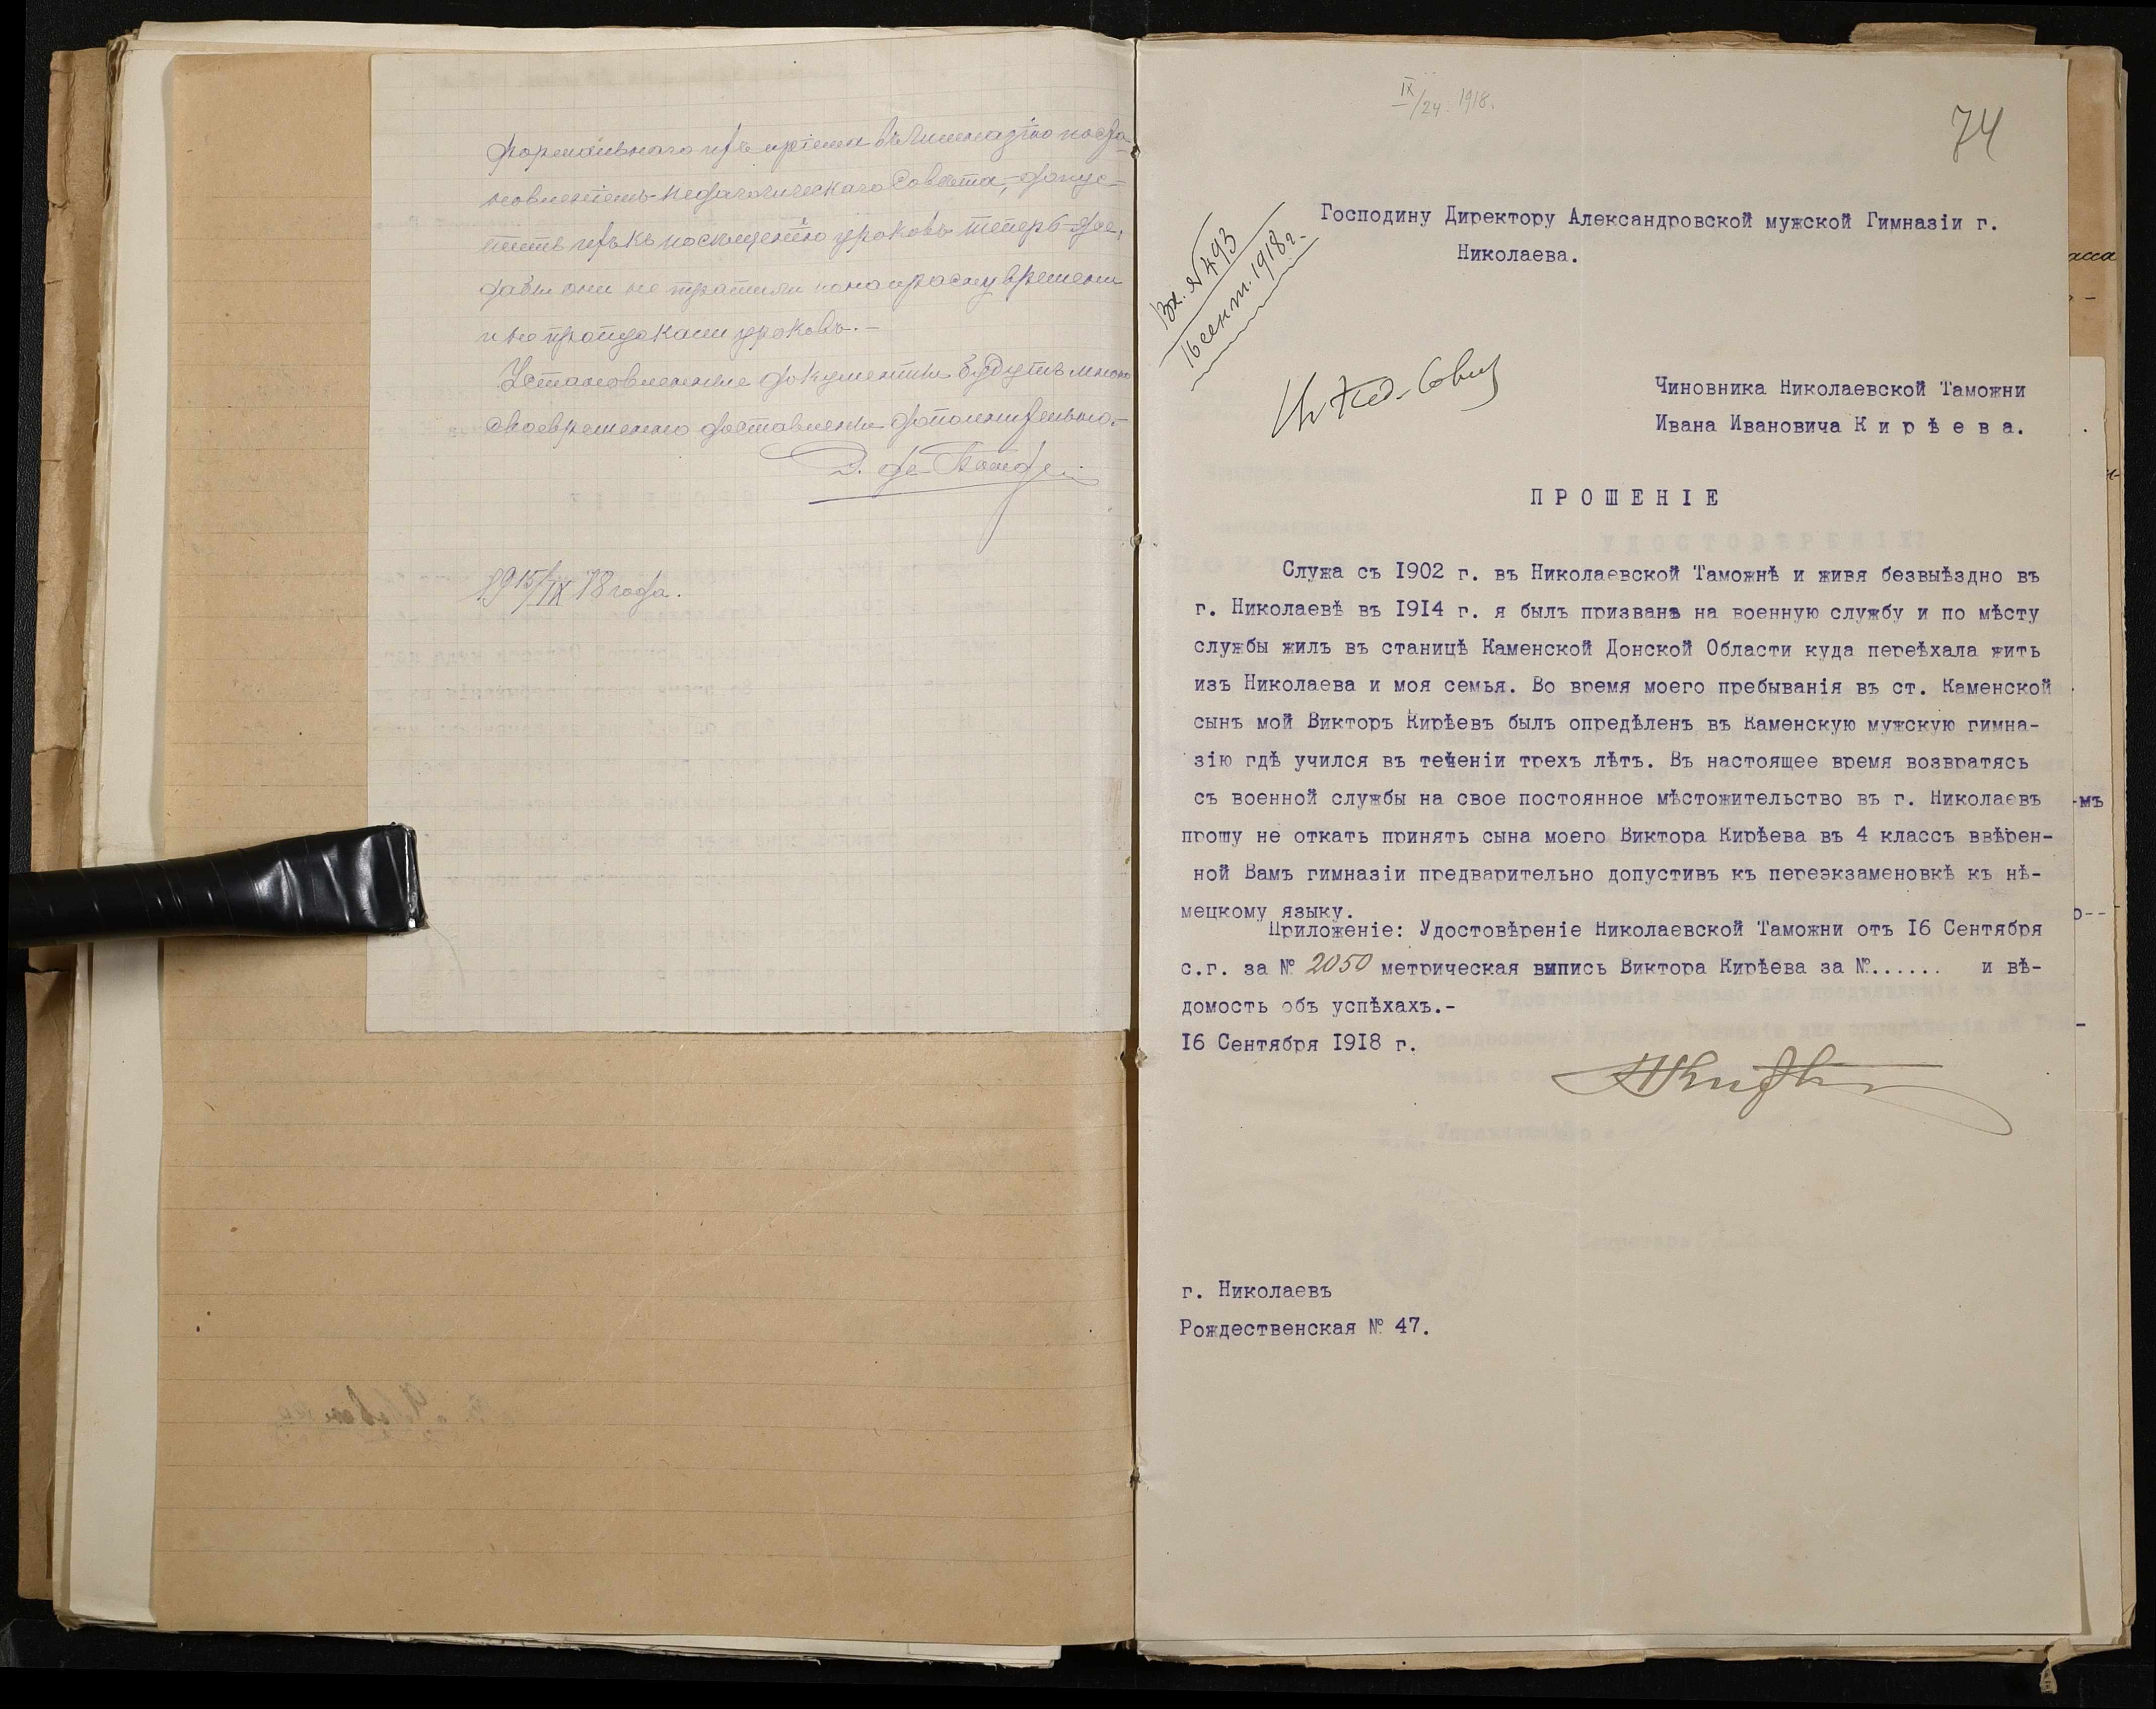 формальнаго ихъ пріема въ Гимназію поста-
новленіемъ Педагогическаго Совѣта, допус-
тить ихъ къ посѣщенію уроковъ теперь-же,
дабы они не тратили понапрасну времени
и не пропускали уроковъ.-
Установленные документы будутъ мною
своевременно доставлены дополнительно.-
IX 18 года.
IX/24. 1918.
74
Господину Директору Александровской мужской Гимназіи г.
Николаева.
Вх. № 493
16 сент. 1918 г.
Чиновника Николаевской Таможни
Ивана Ивановича К и р ѣ е в а.
П Р О Ш Е Н І Е
Служа съ 1902 г. въ Николаевской Таможнѣ и живя безвыѣздно въ
г. Николаевѣ въ 1914 г. я былъ призванъ на военную службу и по мѣсту
службы жилъ въ станицѣ Каменской Донской Области куда переѣхала жить
изъ Николаева и моя семья. Во время моего пребыванія въ ст. Каменской
сынъ мой Викторъ Кирѣевъ былъ опредѣленъ въ Каменскую мужскую гимна-
зію гдѣ учился въ теченіи трехъ лѣтъ. Въ настоящее время возвратясь
съ военной службы на свое постоянное мѣстожительство въ г. Николаевъ
прошу не откать принять сына моего Виктора Кирѣева въ 4 классъ ввѣрен-
ной Вамъ гимназіи предварительно допустивъ къ переэкзаменовкѣ къ нѣ-
мецкому языку.
Приложеніе: Удостовѣреніе Николаевской Таможни отъ 16 Сентября
с.г. за № 2050 метрическая выпись Виктора Кирѣева за №...... и вѣ-
домость объ успѣхахъ.-
16 Сентября 1918 г.
г. Николаевъ
Рождественская № 47.